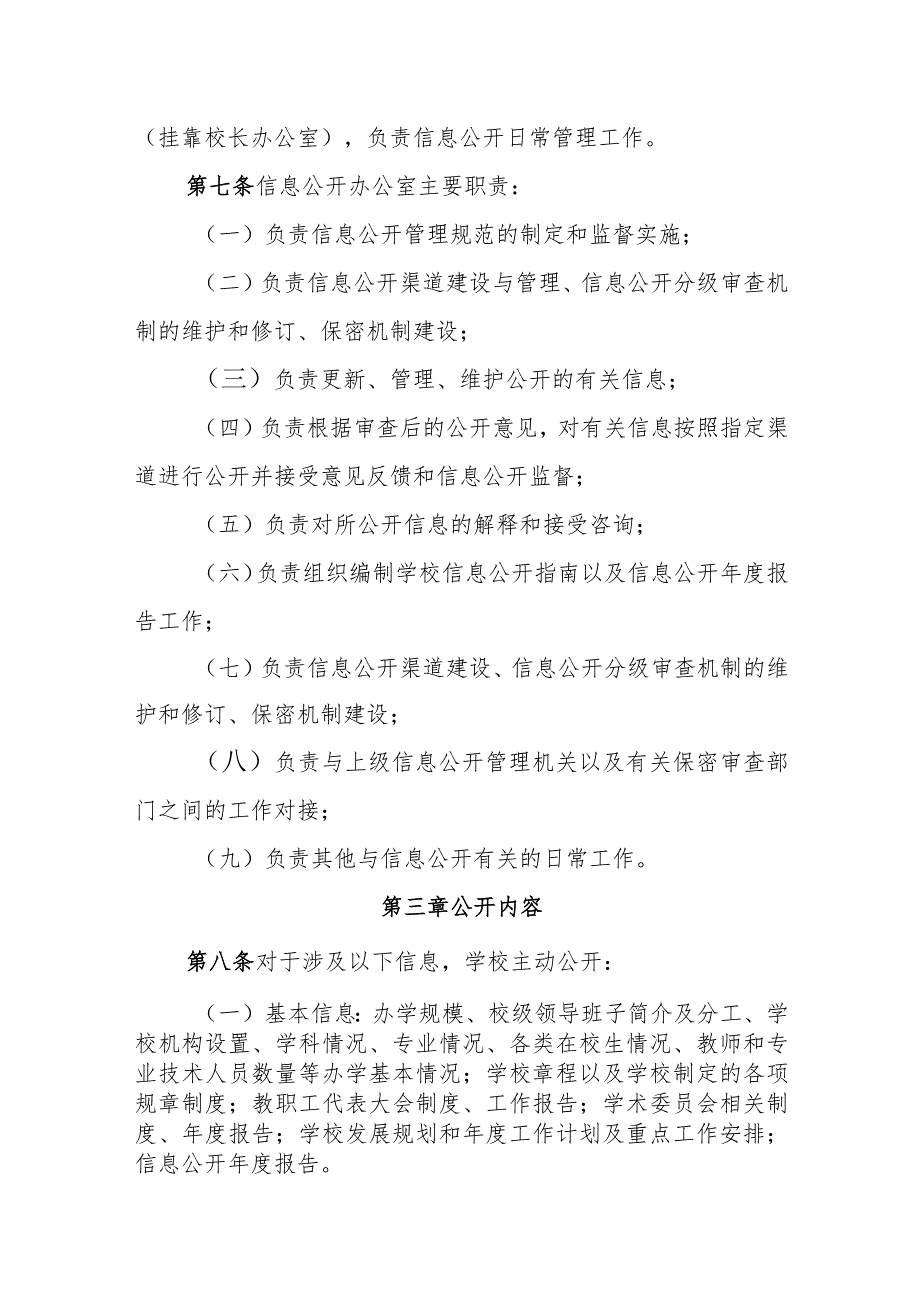 （挂靠校长办公室），负责信息公开日常管理工作。
第七条信息公开办公室主要职责：
（一）负责信息公开管理规范的制定和监督实施；
（二）负责信息公开渠道建设与管理、信息公开分级审查机
制的维护和修订、保密机制建设；
（三）负责更新、管理、维护公开的有关信息；
（四）负责根据审查后的公开意见，对有关信息按照指定渠
道进行公开并接受意见反馈和信息公开监督；
（五）负责对所公开信息的解释和接受咨询；
（六）负责组织编制学校信息公开指南以及信息公开年度报
告工作；
（七）负责信息公开渠道建设、信息公开分级审查机制的维
护和修订、保密机制建设；
（八）负责与上级信息公开管理机关以及有关保密审查部
门之间的工作对接；
（九）负责其他与信息公开有关的日常工作。
第三章公开内容
第八条对于涉及以下信息，学校主动公开：
（一）基本信息：办学规模、校级领导班子简介及分工、学
校机构设置、学科情况、专业情况、各类在校生情况、教师和专
业技术人员数量等办学基本情况；学校章程以及学校制定的各项
规章制度；教职工代表大会制度、工作报告；学术委员会相关制
度、年度报告；学校发展规划和年度工作计划及重点工作安排；
信息公开年度报告。